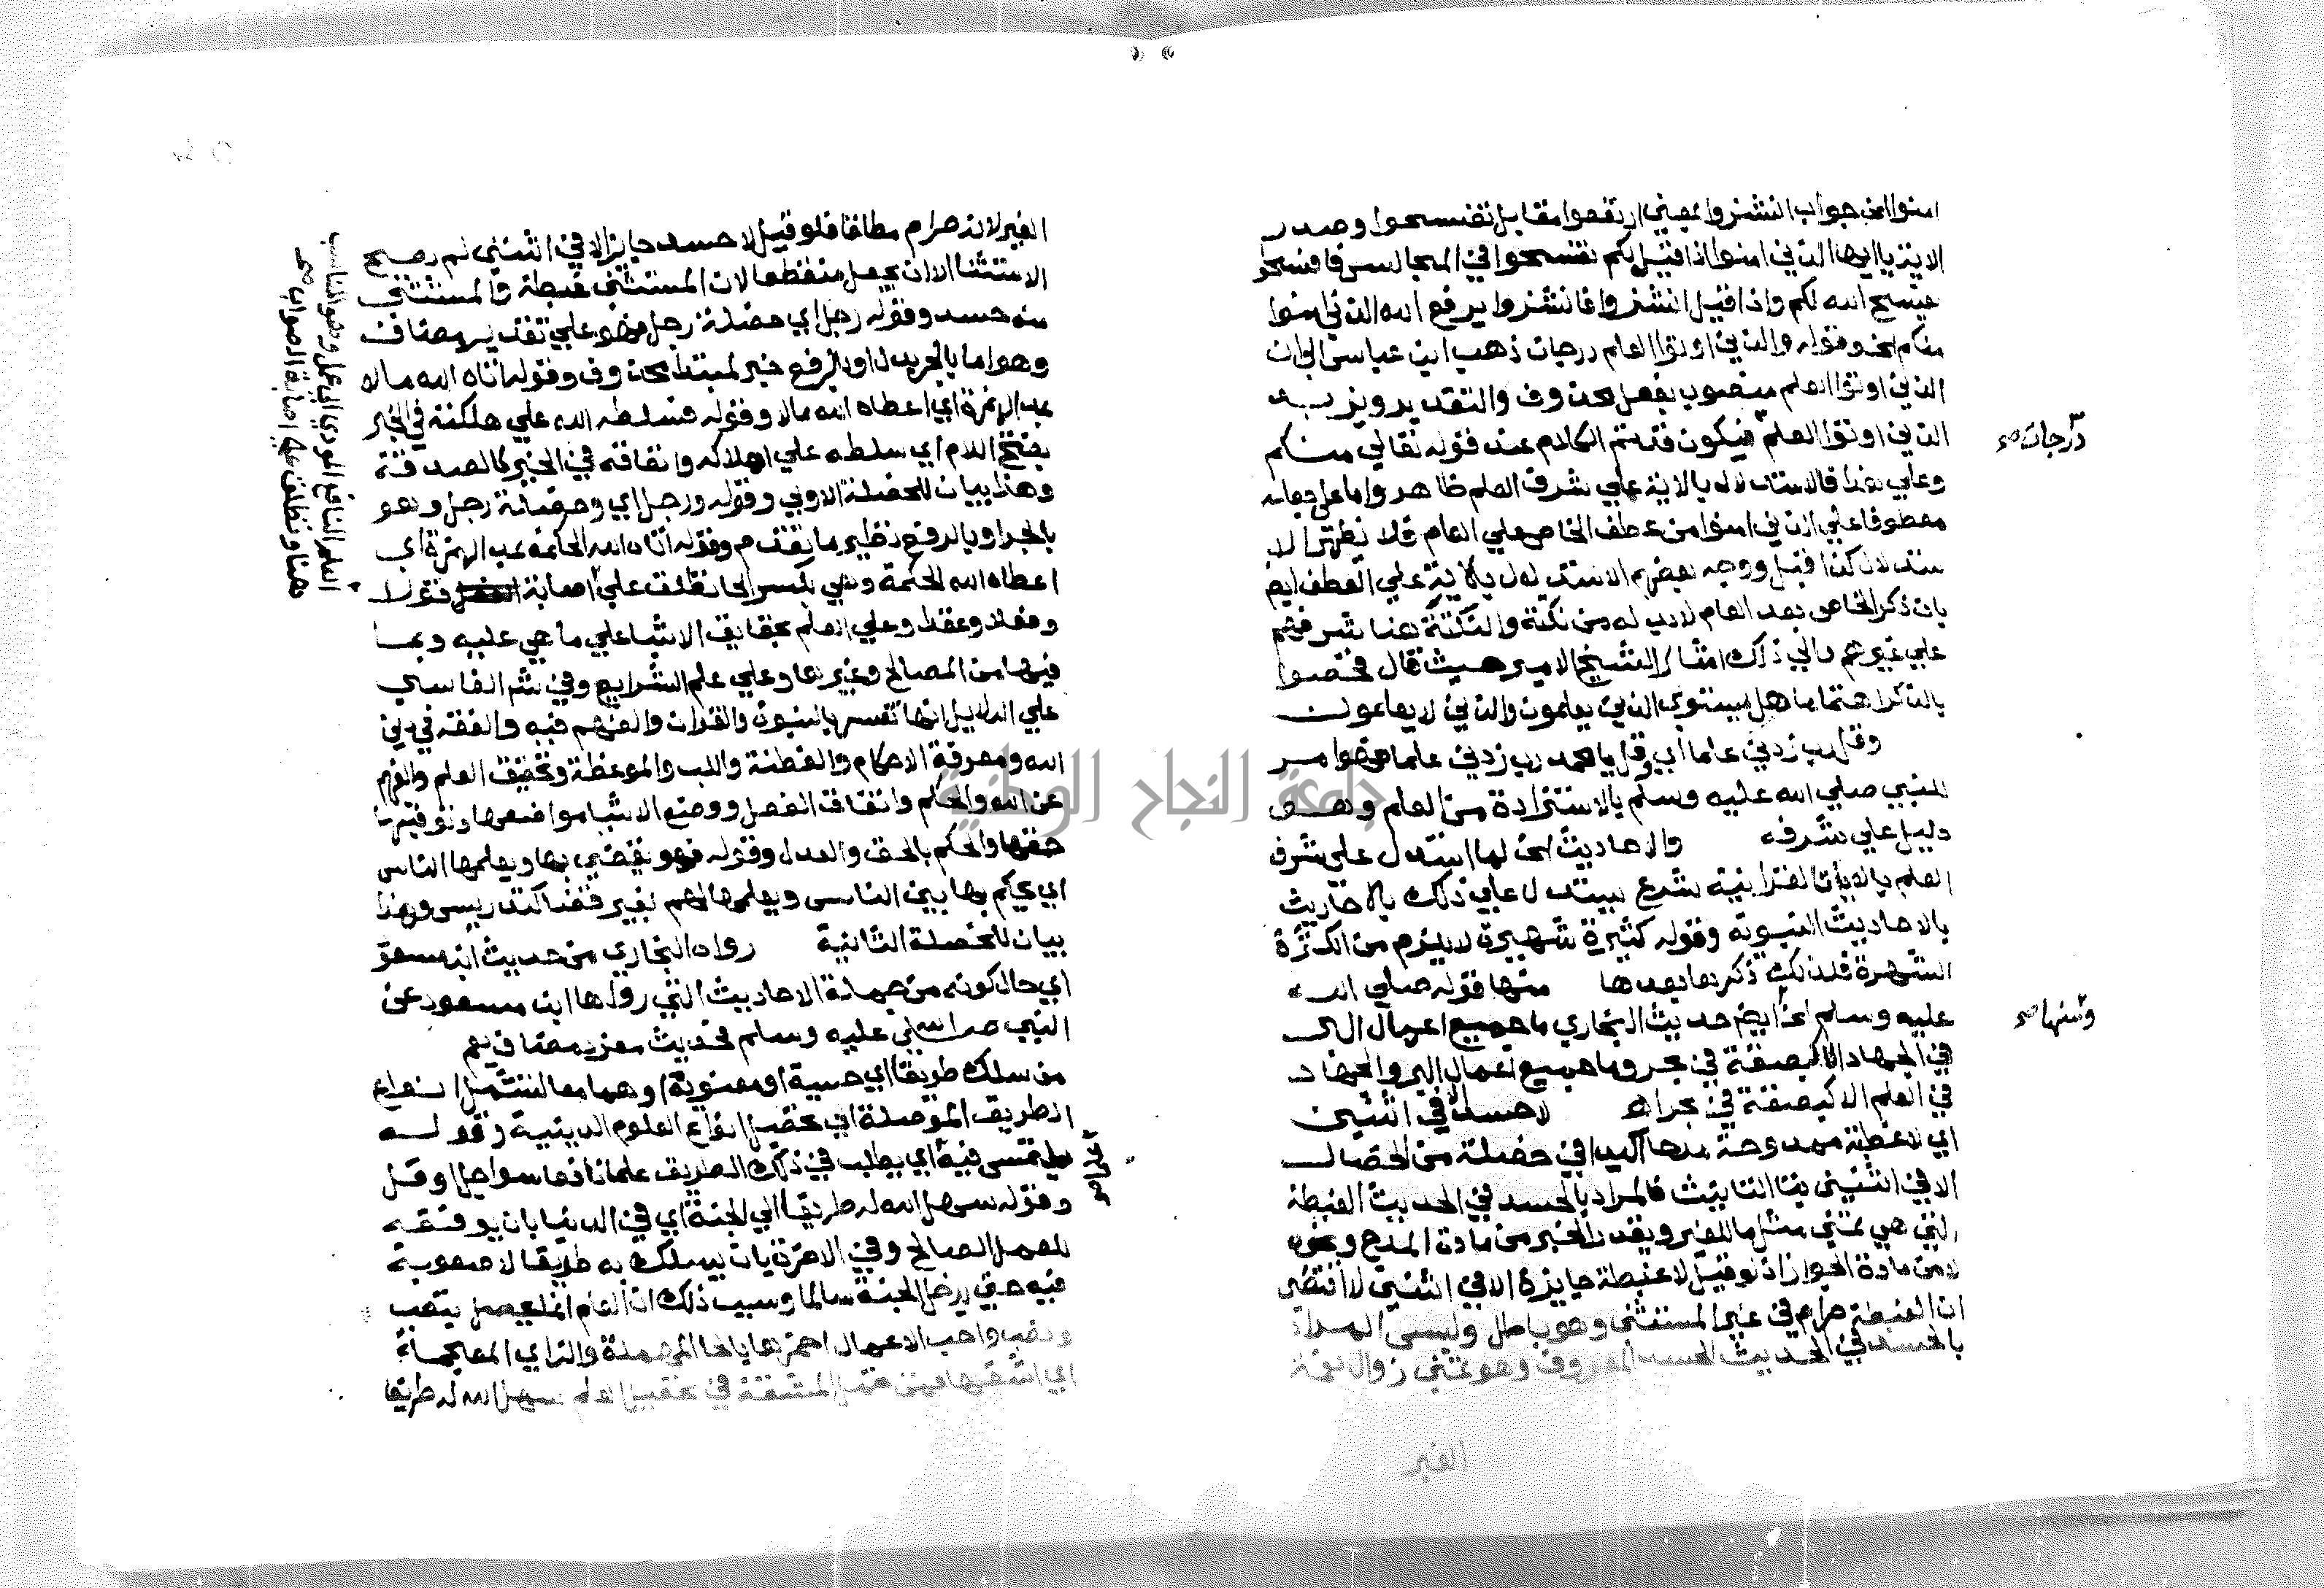 امنوا الخ جواب انشزوا بمعني ارتفعوا مقابل تفسحوا وصدر
الاية يا ايها الذين امنوا اذا قيل لكم تفسحوا في المجالس فافسحوا
يفسح الله لكم واذا قيل انشزوا فانشزوا يرفع الله الذين امنوا
منكم الخ وقوله والذين اوتوا العلم درجات ذهب ابن عباس الي ان
الذين اوتوا العلم منصوب بفعل محذوف والتقدير ويرفع
الذين اوتوا العلم فيكون قد تم الكلام عند قوله تعالي منكم
درجات صح
وعلي هذا فالاستدلال بالاية علي شرف العلم ظاهر واما علي جعله
معطوفا علي الذين امنوا من عطف الخاص علي العام فلا يظهر الا
ستدلال كذا قيل ووجه بعضهم الاستدلال بالاية علي العطف ايضا
بان ذكر الخاص بعد العام لابد له من نكتة والنكتة هنا شرفهم
علي غيرهم والي ذلك اشار الشيخ الامير حيث قال فخصوا
بالذكر اهتماما هل يستوي الذين يعلمون والذين لا يعلمون
وقل رب زدني علما اي وقل يا محمد رب زدني علما فهو امر
للنبي صلي الله عليه وسلم بالاستزادة من العلم وهو
دليل علي شرفه والاحاديث الخ لما استدل علي شرف
العلم بالايات القرانية شرع يستدل علي ذلك بالاحاديث
بالاحاديث النبوية وقوله كثيرة شهيرة لا يلزم من الكثرة
الشهرة فلذلك ذكرها بعدها منها قوله صلي الله
عليه وسلم الخ ايضا حديث البخاري ما جميع اعمال البر
ومنها صح
في الجهاد الا كبصقة في بحر وما جميع اعمال البر والجهاد
في العلم الا كبصقة في بحر اهـ لا حسد الا في اثنين
اي لا غبطة ممدوحة مدحا اكيدا في خصلة من الخصال
الا في اثنين بتا التانيث فالمراد بالحسد في الحديث الغبطة
التي هي تمني مثل ما للغير ويقدر الخبر من مادة المدح ونحوه
لا من مادة الجواز اذ لو قيل لا غبطة جايزة الا في اثنين لاقتضي
ان الغبطة حرام في غير المستثني وهو باطل وليس المراد
بالحسد في الحديث الحسد المعروف وهو تمني زوال نعمة
الغير
الغير لانه حرام مطلقا فلو قيل لا حسد جايز الا في اثنين لم يصح
الاستثنا الا ان يجعل منقطعا لان المستثني غبطة والمستثني
منه حسد وقوله رجل اي خصلة رجل فهو علي تقدير مضاف
وهو اما بالجر بدل او بالرفع خبر لمبتدا محذوف وقوله اتاه الله مالا
بمد الهمزة اي اعطاه الله مالا وقوله فسلطه الله علي هلكته في الخير
بفتح اللام اي سلطه علي اهلاكه وانفاقه في الخير كالصدقة
وهذا بيان للخصلة الاولي وقوله ورجل اي وخصلة رجل وهو
بالجر او بالرفع نظير ما تقدم وقوله اتاه الله الحكمة بمد الهمزة اي
اعطاه الله الحكمة وهي بكسر الحا تطلق علي اصابة قولا
وفعلا وعقدا وعلي العلم بحقايق الاشيا علي ما هي عليه وبما
فيها من المصالح وغيرها وعلي علم الشرايع وفي شرح الفاسي
علي الدلايل انها تفسر بالنبوة والقران والفهم فيه والفقه في دين
الله ومعرفة الاحكام والفطنة واللب والموعظة وتحقيق العلم والفهم
عن الله والحكم واتقان الفصل ووضع الاشيا مواضعها وتوفيتها
حقها والحكم بالحق والعدل وقوله فهو يقضي بها ويعلمها الناس
اي يحكم بها بين الناس ويعلمها لهم لغير فقد التدريس وهذا
بيان للخصلة الثانية رواه البخاري من حديث ابن مسعود
اي حال كونه من جملة الاحاديث التي رواها ابن مسعود عن
النبي صلي الله عليه وسلم فحديث مفرد مضاف يعم
من سلك طريقا اي حسية او معنوية او هما معا لتشمل انواع
الطريق الموصلة الي تحصيل انواع العلوم الدينية وقوله
يلتمس فيه اي يطلب في ذلك الطريق علما نافعا سواء جل او قل
وقوله سهل الله له طريقا الي الجنة اي في الدنيا بان يوفقه
للعمل الصالح وفي الاخرة بان يسلك به طريقا لا صعوبة
فيه حتي يدخل الجنة سالما وسبب ذلك ان العلم انما يحصل بتعب
ونصب واحب الاعمال احمزها بالحا المهملة والزاي المعجمة
اي اشقها فمن تحمل المشقة في تحصيل العلم سهل الله له طريقا
العلم النافع المودي الي عمل وهو المناسب
هنا وتطلق علي اصابة الصواب صح